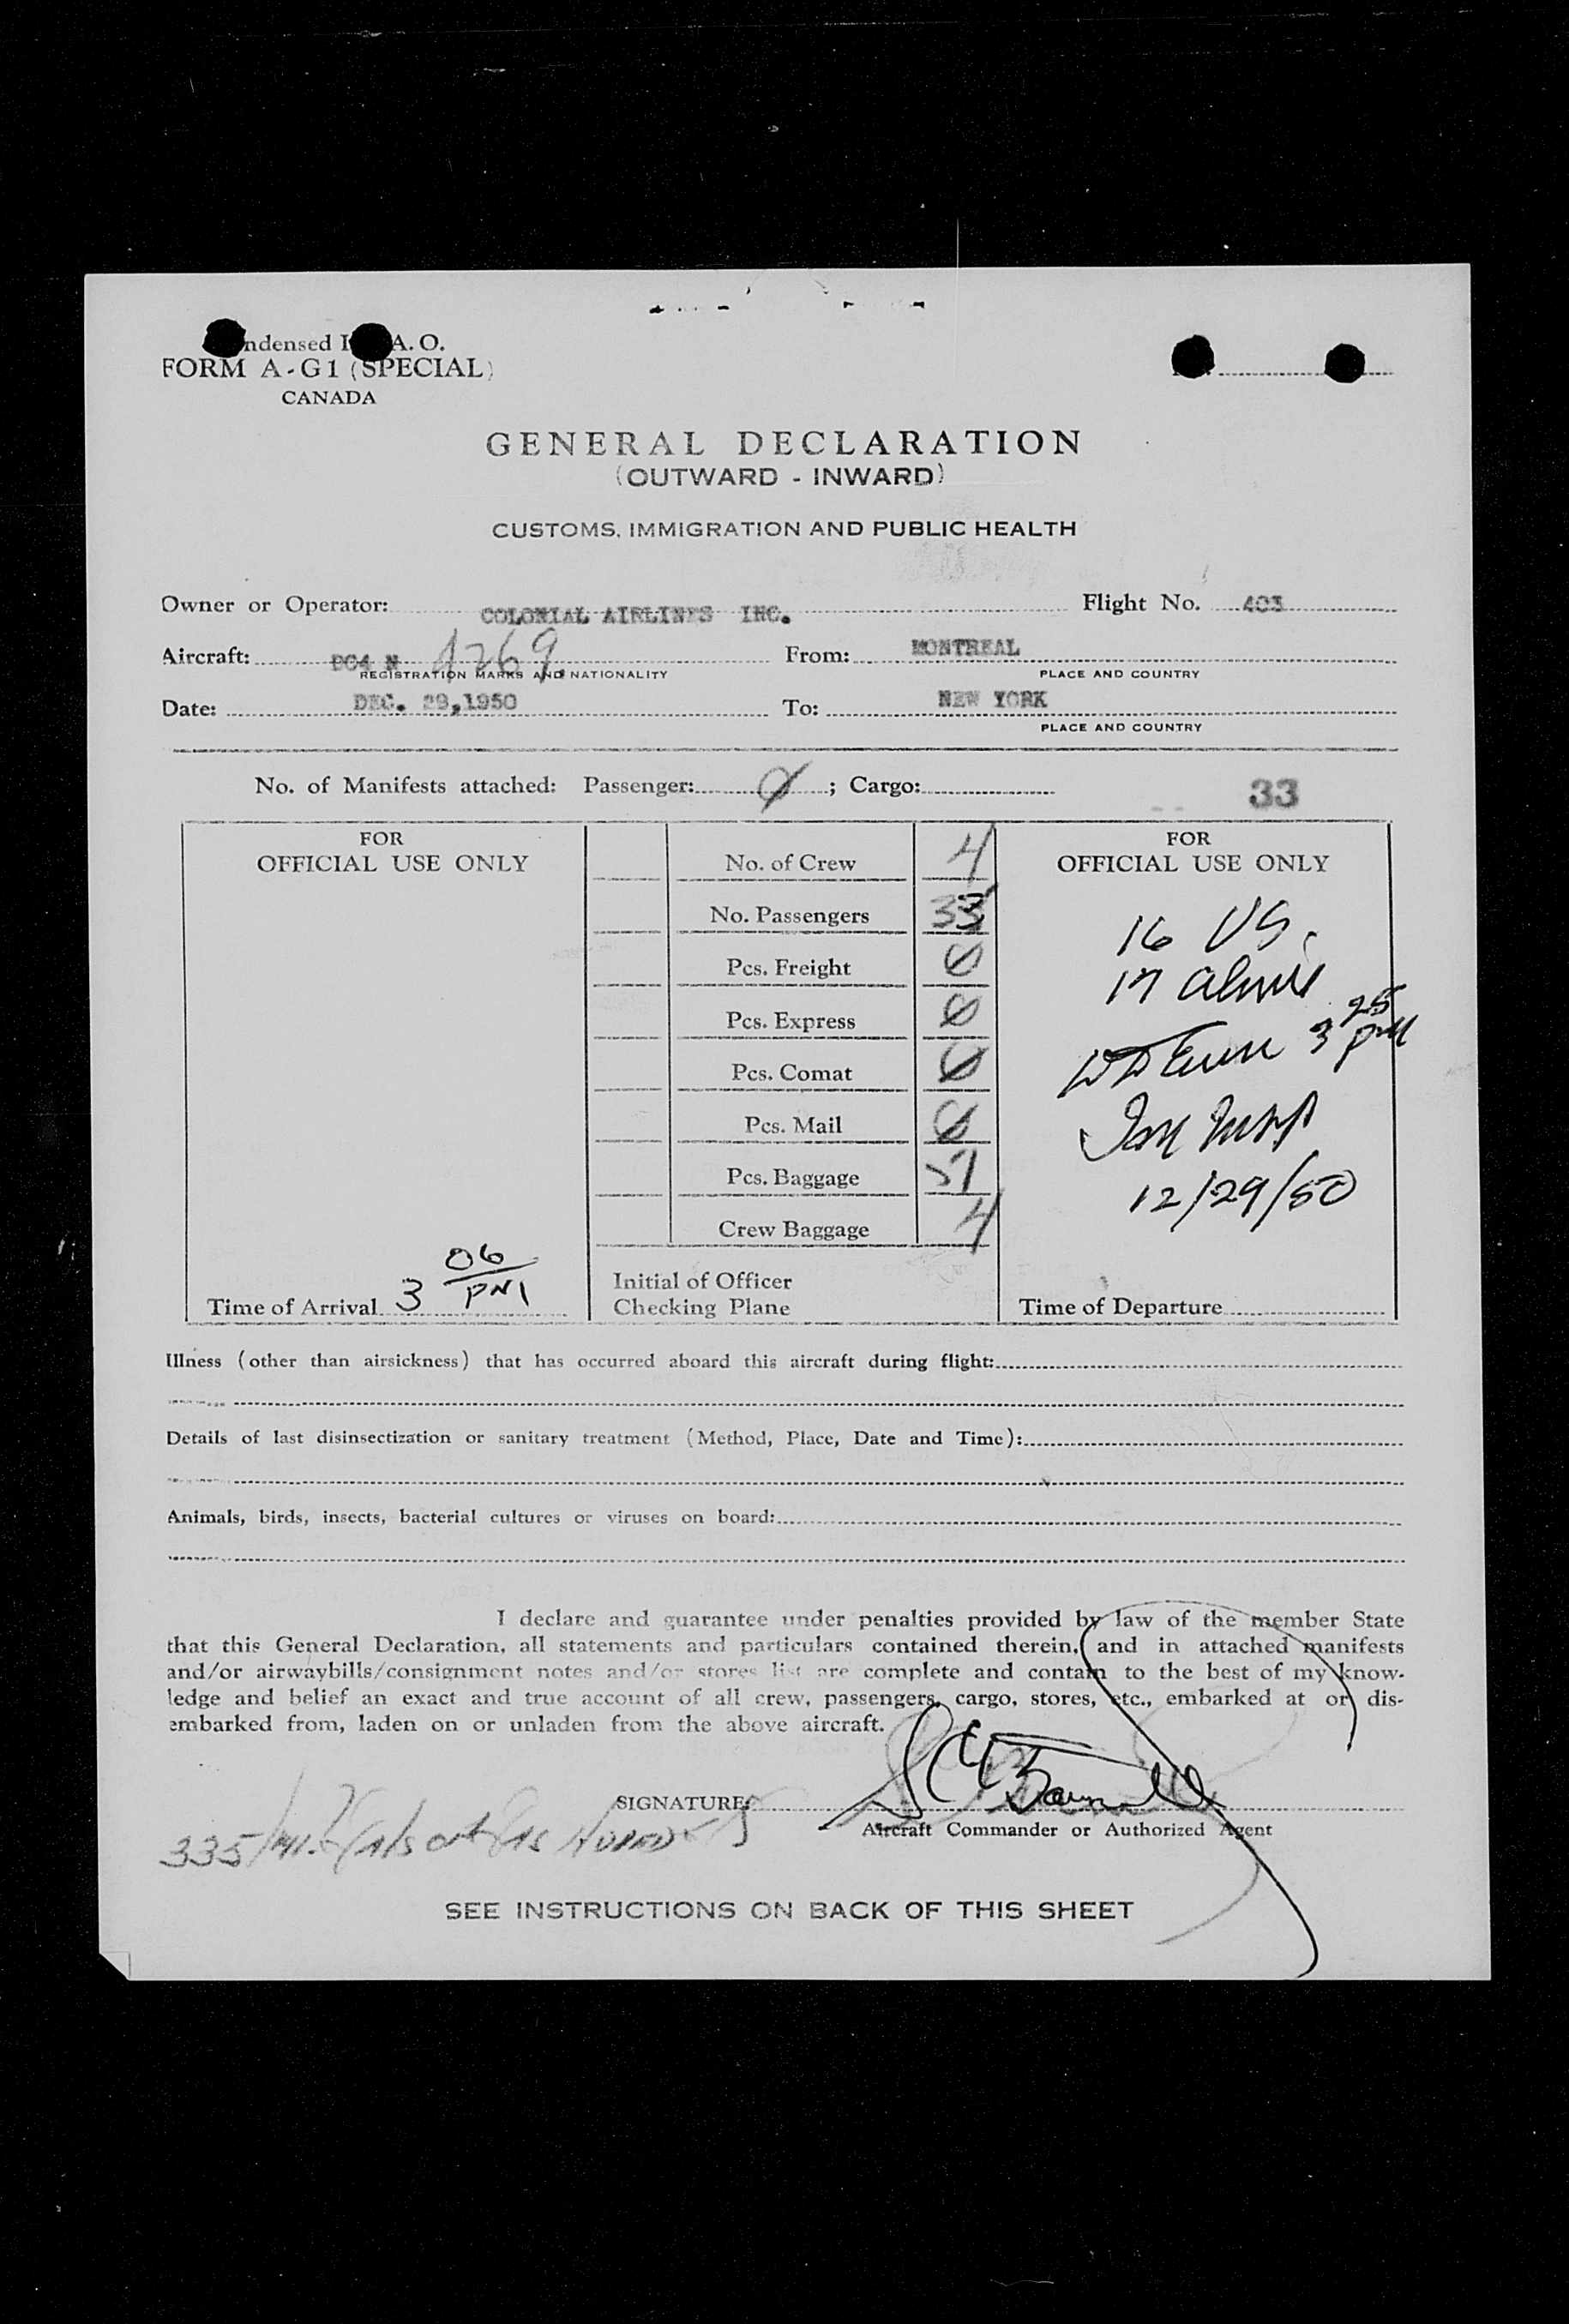 ndensed I A. O.
FORM A-G1 (SPECIAL)
CANADA
GENERAL DECLARATION
(OUTWARD - INWARD)
CUSTOMS, IMMIGRATION AND PUBLIC HEALTH
Owner or Operator: COLONIAL AIRLINES INC. Flight No. 403
Aircraft: DC4 N 1269 From: MONTREAL
REGISTRATION MARKS AND NATIONALITY PLACE AND COUNTRY
Date: DEC. 29,1950 To: NEW YORK
PLACE AND COUNTRY
No. of Manifests attached: Passenger: 0 ; Cargo:
33
FOR
OFFICIAL USE ONLY
Time of Arrival 3 06 PM
No. of Crew 4
No. Passengers 33
Pcs. Freight 0
Pcs. Express 0
Pcs. Comat 0
Pcs. Mail 0
Pcs. Baggage 57
Crew Baggage 4
Initial of Officer
Checking Plane
FOR
OFFICIAL USE ONLY
16 US.
17 aliens
3 25 PM
12/29/50
Time of Departure
Illness (other than airsickness) that has occurred aboard this aircraft during flight:
Details of last disinsectization or sanitary treatment (Method, Place, Date and Time):
Animals, birds, insects, bacterial cultures or viruses on board:
I declare and guarantee under penalties provided by law of the member State
that this General Declaration, all statements and particulars contained therein, and in attached manifests
and/or airwaybills/consignment notes and/or stores list are complete and contain to the best of my know-
ledge and belief an exact and true account of all crew, passengers, cargo, stores, etc., embarked at or dis-
embarked from, laden on or unladen from the above aircraft.
SIGNATURE:
Aircraft Commander or Authorized Agent
335
SEE INSTRUCTIONS ON BACK OF THIS SHEET